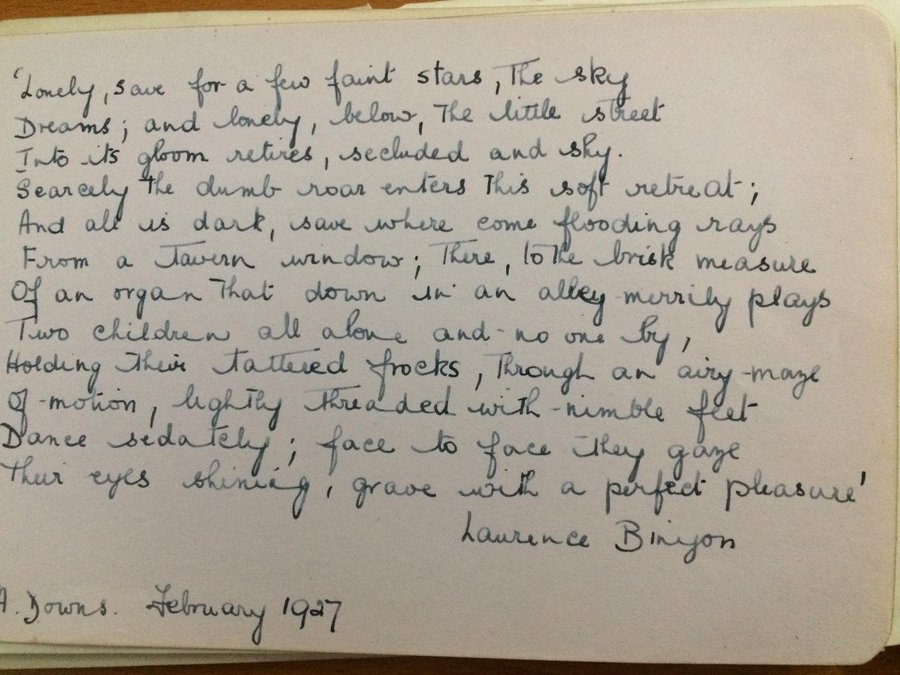 'Lonely, save for a few faint stars, the sky
Dreams; and lonely, below, the little street
Into its gloom retires, secluded and shy.
Scarcely the dumb roar enters this soft retreat;
And all is dark, save where come flooding rays
From a tavern window; there, to the brisk measure
Of an organ that down in an alley merrily plays
Two children all alone and no one by,
Holding their tattered frocks, through an airy maze
Of motion, lightly threaded with nimble feet
Dance sedately; face to face they gaze
Their eyes shining, grave with a perfect pleasure'
Laurence Binyon
A. Downs. February 1927